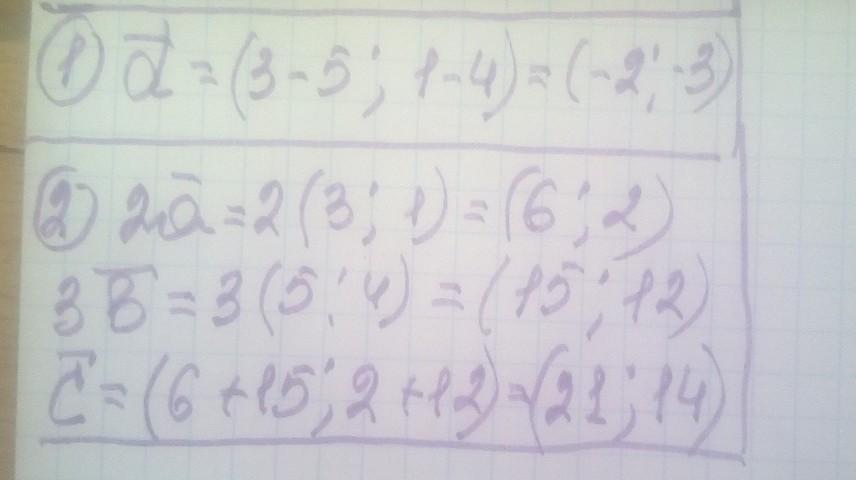 ① d⃗ = (3-5; 1-4) = (-2; -3)
② 2a̅ = 2(3; 1) = (6; 2)
3b̅ = 3(5; 4) = (15; 12)
c̅ = (6+15; 2+12) = (21; 14)